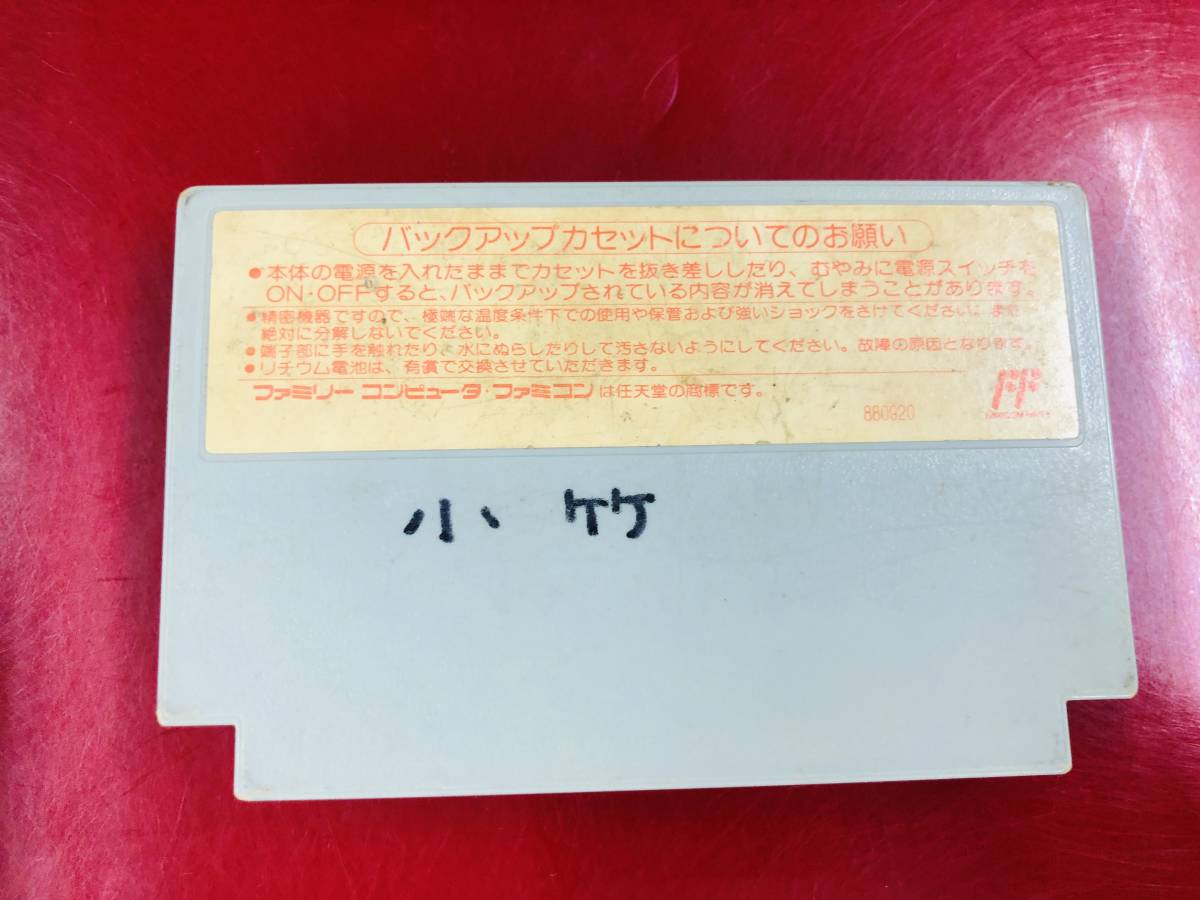 バックアップカセットについてのお願い
●本体の電源を入れたままでカセットを抜き差ししだり、むやみに電源スイッチを
ON・OFFすると、バックアップされている内容が消えてしまうことがあります。
●精密機器ですので、極端な温度条件下での使用や保管および強いショックをさけてください。また
絶対に分解しないでください。
●端子部に手を触れたり、水にぬらしたりして汚さないようにしてください。故障の原因となります。
●リチウム電池は、有償で交換させていただきます。
ファミリーコンピュータ・ファミコンは任天堂の商標です。
880920
小竹